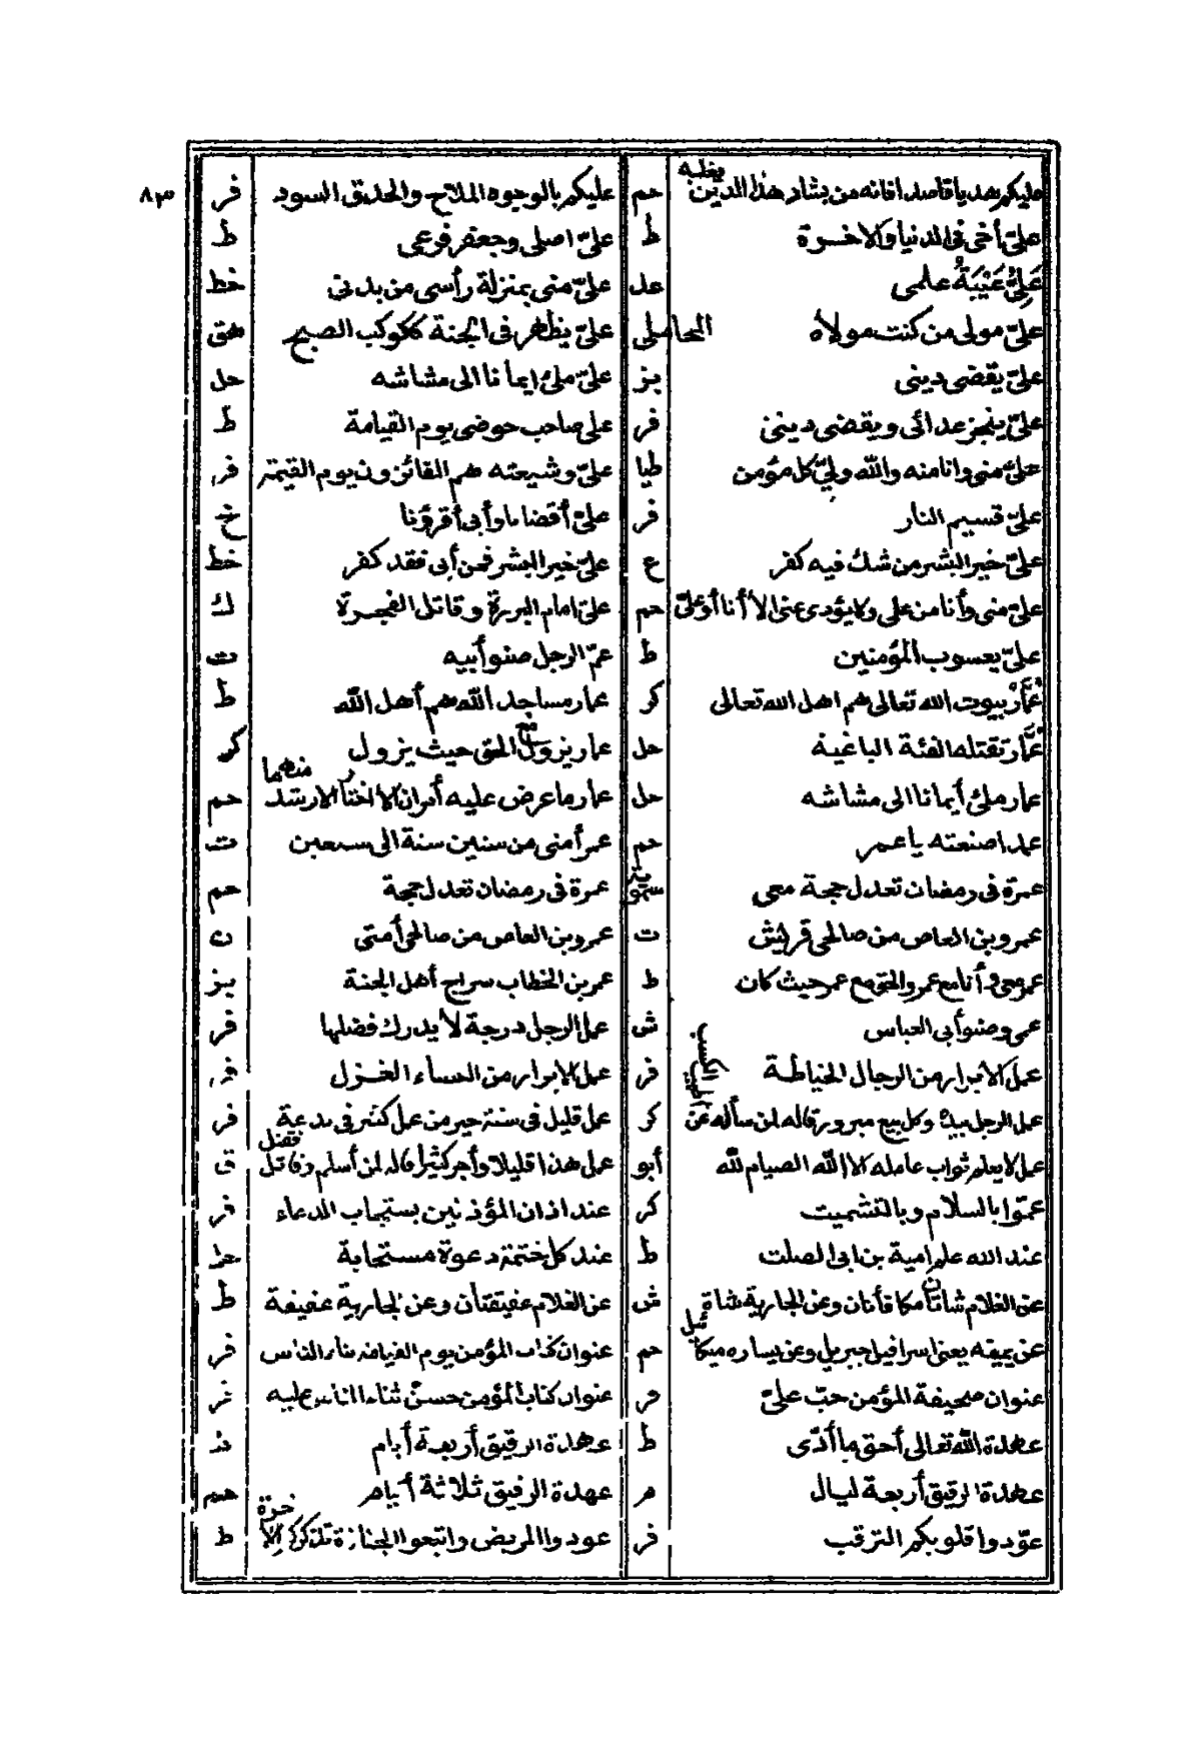 ٨٣
عليكم هديا قاصدا فانه من يشاد هذا الدين يغلبه حم عليكم بالوجوه الملاح والحدق السود فر
علىّ أخى فى الدنيا والاخرة ط علىّ اصلى وجعفر فرعى ط
عَلِىٌّ عَيْبَةُ علمى عد علىّ منى بمنزلة رأسى من بدنى خط
علىّ مولى من كنت مولاه المحاملى علىّ يظهر فى الجنة ككوكب الصبح هق
علىّ يقضى دينى بز علىّ ملئ ايمانا الى مشاشه حل
علىّ ينجز عداتى ويقضى دينى فر على صاحب حوضى يوم القيامة ط
علىّ منى وانا منه والله ولىّ كل مؤمن طيا علىّ وشيعته هم الفائزون يوم القيمة فر
علىّ قسيم النار فر علىّ أقضانا وأبى أقرؤنا خ
علىّ خير البشر من شك فيه كفر ع علىّ خير البشر فمن أبى فقد كفر خط
علىّ منى وأنا من على ولا يؤدى عنى الا أنا أو علىّ حم علىّ امام البررة وقاتل الفجرة ك
علىّ يعسوب المؤمنين ط عمّ الرجل صنو أبيه ت
عُمَّارُ بيوت الله تعالى هم اهل الله تعالى كر عمار مساجد الله هم أهل الله ط
عَمَّار تقتله الفئة الباغية حل عمار يزول مع الحق حيث يزول كر
عمار ملئ أيمانا الى مشاشه حل عمار ما عرض عليه أمران الا اختار الارشد منهما حم
عمدا صنعته يا عمر حم عمر أمتى من ستين سنة الى سبعين ت
عمرة فى رمضان تعدل حجة معى سمويه عمرة فى رمضان تعدل حجة حم
عمرو بن العاص من صالحى قريش ت عمرو بن العاص من صالحى أمتى ن
عمر معى وأنا مع عمر والحق مع عمر حيث كان ط عمر بن الخطاب سراج أهل الجنة بز
عمى وصنو أبى العباس ش عمل الرجل درجة لا يدرك فضلها فر
عمل الابرار من الرجال الخياطة فر عمل الابرار من النساء الغزل فر
عمل الرجل بيده وكل بيع مبرور قاله لمن سأله عن أطيب الكسب كر عمل قليل فى سنة خير من عمل كثير فى بدعة فر
عمل لا يعلم ثواب عامله الا الله الصيام لله أبو عمل هذا قليلا وأجر كثيرا قاله لمن أسلم وقاتل فقتل ق
عمّوا بالسلام وبالتشميت كر عند اذان المؤذنين يستجاب الدعاء فر
عند الله علم امية بن ابى الصلت ط عند كل ختمة دعوة مستجابة
عن الغلام شاتان مكافأتان وعن الجارية شاة ش عن الغلام عقيقتان وعن الجارية عقيقة ط
عن يمينه يعنى اسرافيل جبريل وعن يساره ميكائيل حم عنوان كتاب المؤمن يوم القيامة ثناء الناس فر
عنوان صحيفة المؤمن حبّ علىّ فر عنوان كتاب المؤمن حسن ثناء الناس عليه فر
عهدة الله تعالى أحق ما أدّى ط عهدة الرقيق أربعة أيام
عهدة الرقيق أربعة ليال عهدة الرقيق ثلاثة أيام حم
عوّدوا قلوبكم الترقب فر عودوا المريض واتبعوا الجنازة تذكركم الآخرة ط